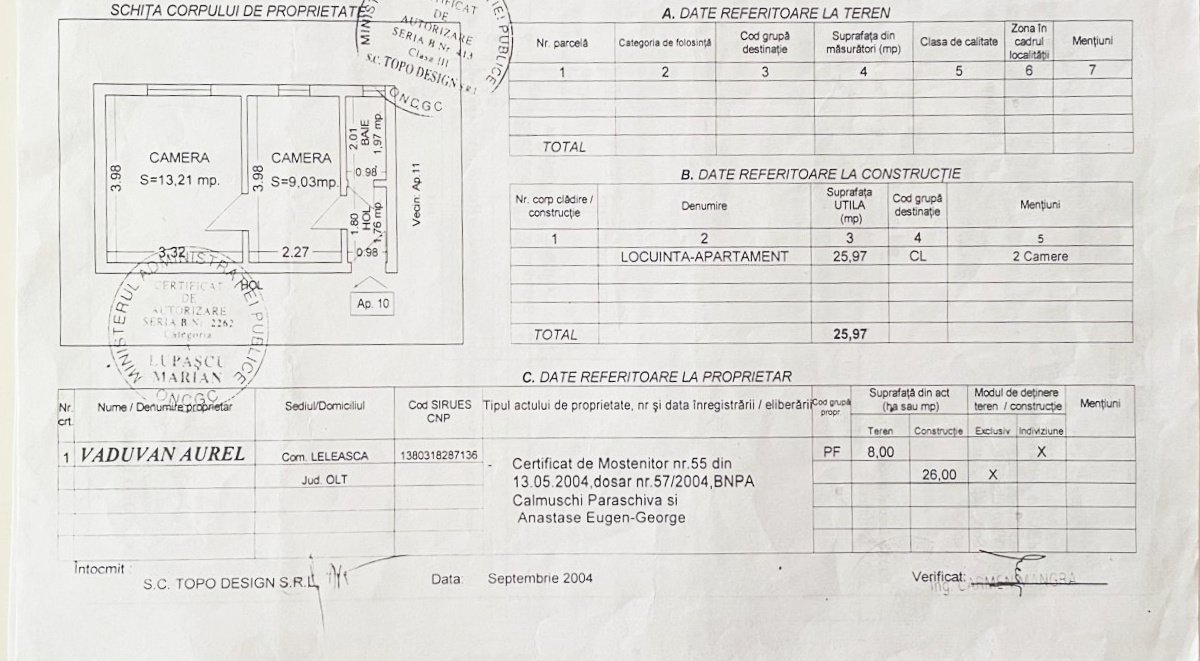 SCHIȚA CORPULUI DE PROPRIETATE
CERTIFICAT
DE
AUTORIZARE
SERIA B Nr. 413
Clasa III
S.C. TOPO DESIGN S.R.L
ONCGC
CAMERA
S=13,21 mp.
3.98
3.32
CAMERA
S=9,03mp.
3.98
2.27
BAIE
2.01
1.97 mp.
0.98
HOL
1.80
1,76 mp.
0.98
Vecin. Ap.11
HOL
Ap. 10
MINISTERUL ADMINISTRATIEI PUBLICE
CERTIFICAT
DE
AUTORIZARE
SERIA B Nr. 2262
Categoria
LUPAȘCU
MARIAN
ONCGC
A. DATE REFERITOARE LA TEREN
Nr. parcelă Categoria de folosință Cod grupă destinație Suprafața din măsurători (mp) Clasa de calitate Zona în cadrul localității Mențiuni
1 2 3 4 5 6 7
TOTAL
B. DATE REFERITOARE LA CONSTRUCȚIE
Nr. corp clădire / construcție Denumire Suprafața UTILA (mp) Cod grupă destinație Mențiuni
1 2 3 4 5
LOCUINTA-APARTAMENT 25,97 CL 2 Camere
TOTAL 25,97
C. DATE REFERITOARE LA PROPRIETAR
Nr. crt. Nume / Denumire proprietar Sediul/Domiciliul Cod SIRUES CNP Tipul actului de proprietate, nr și data înregistrării / eliberării Cod grupă propr. Suprafață din act (ha sau mp) Modul de deținere teren / construcție Mențiuni
Teren Construcție Exclusiv Indiviziune
1 VADUVAN AUREL Com. LELEASCA 1380318287136 PF 8,00 X
Jud. OLT 26,00 X
- Certificat de Mostenitor nr.55 din
13.05.2004,dosar nr.57/2004,BNPA
Calmuschi Paraschiva si
Anastase Eugen-George
Întocmit :
S.C. TOPO DESIGN S.R.L
Data: Septembrie 2004
Verificat:
ing. CARMEN